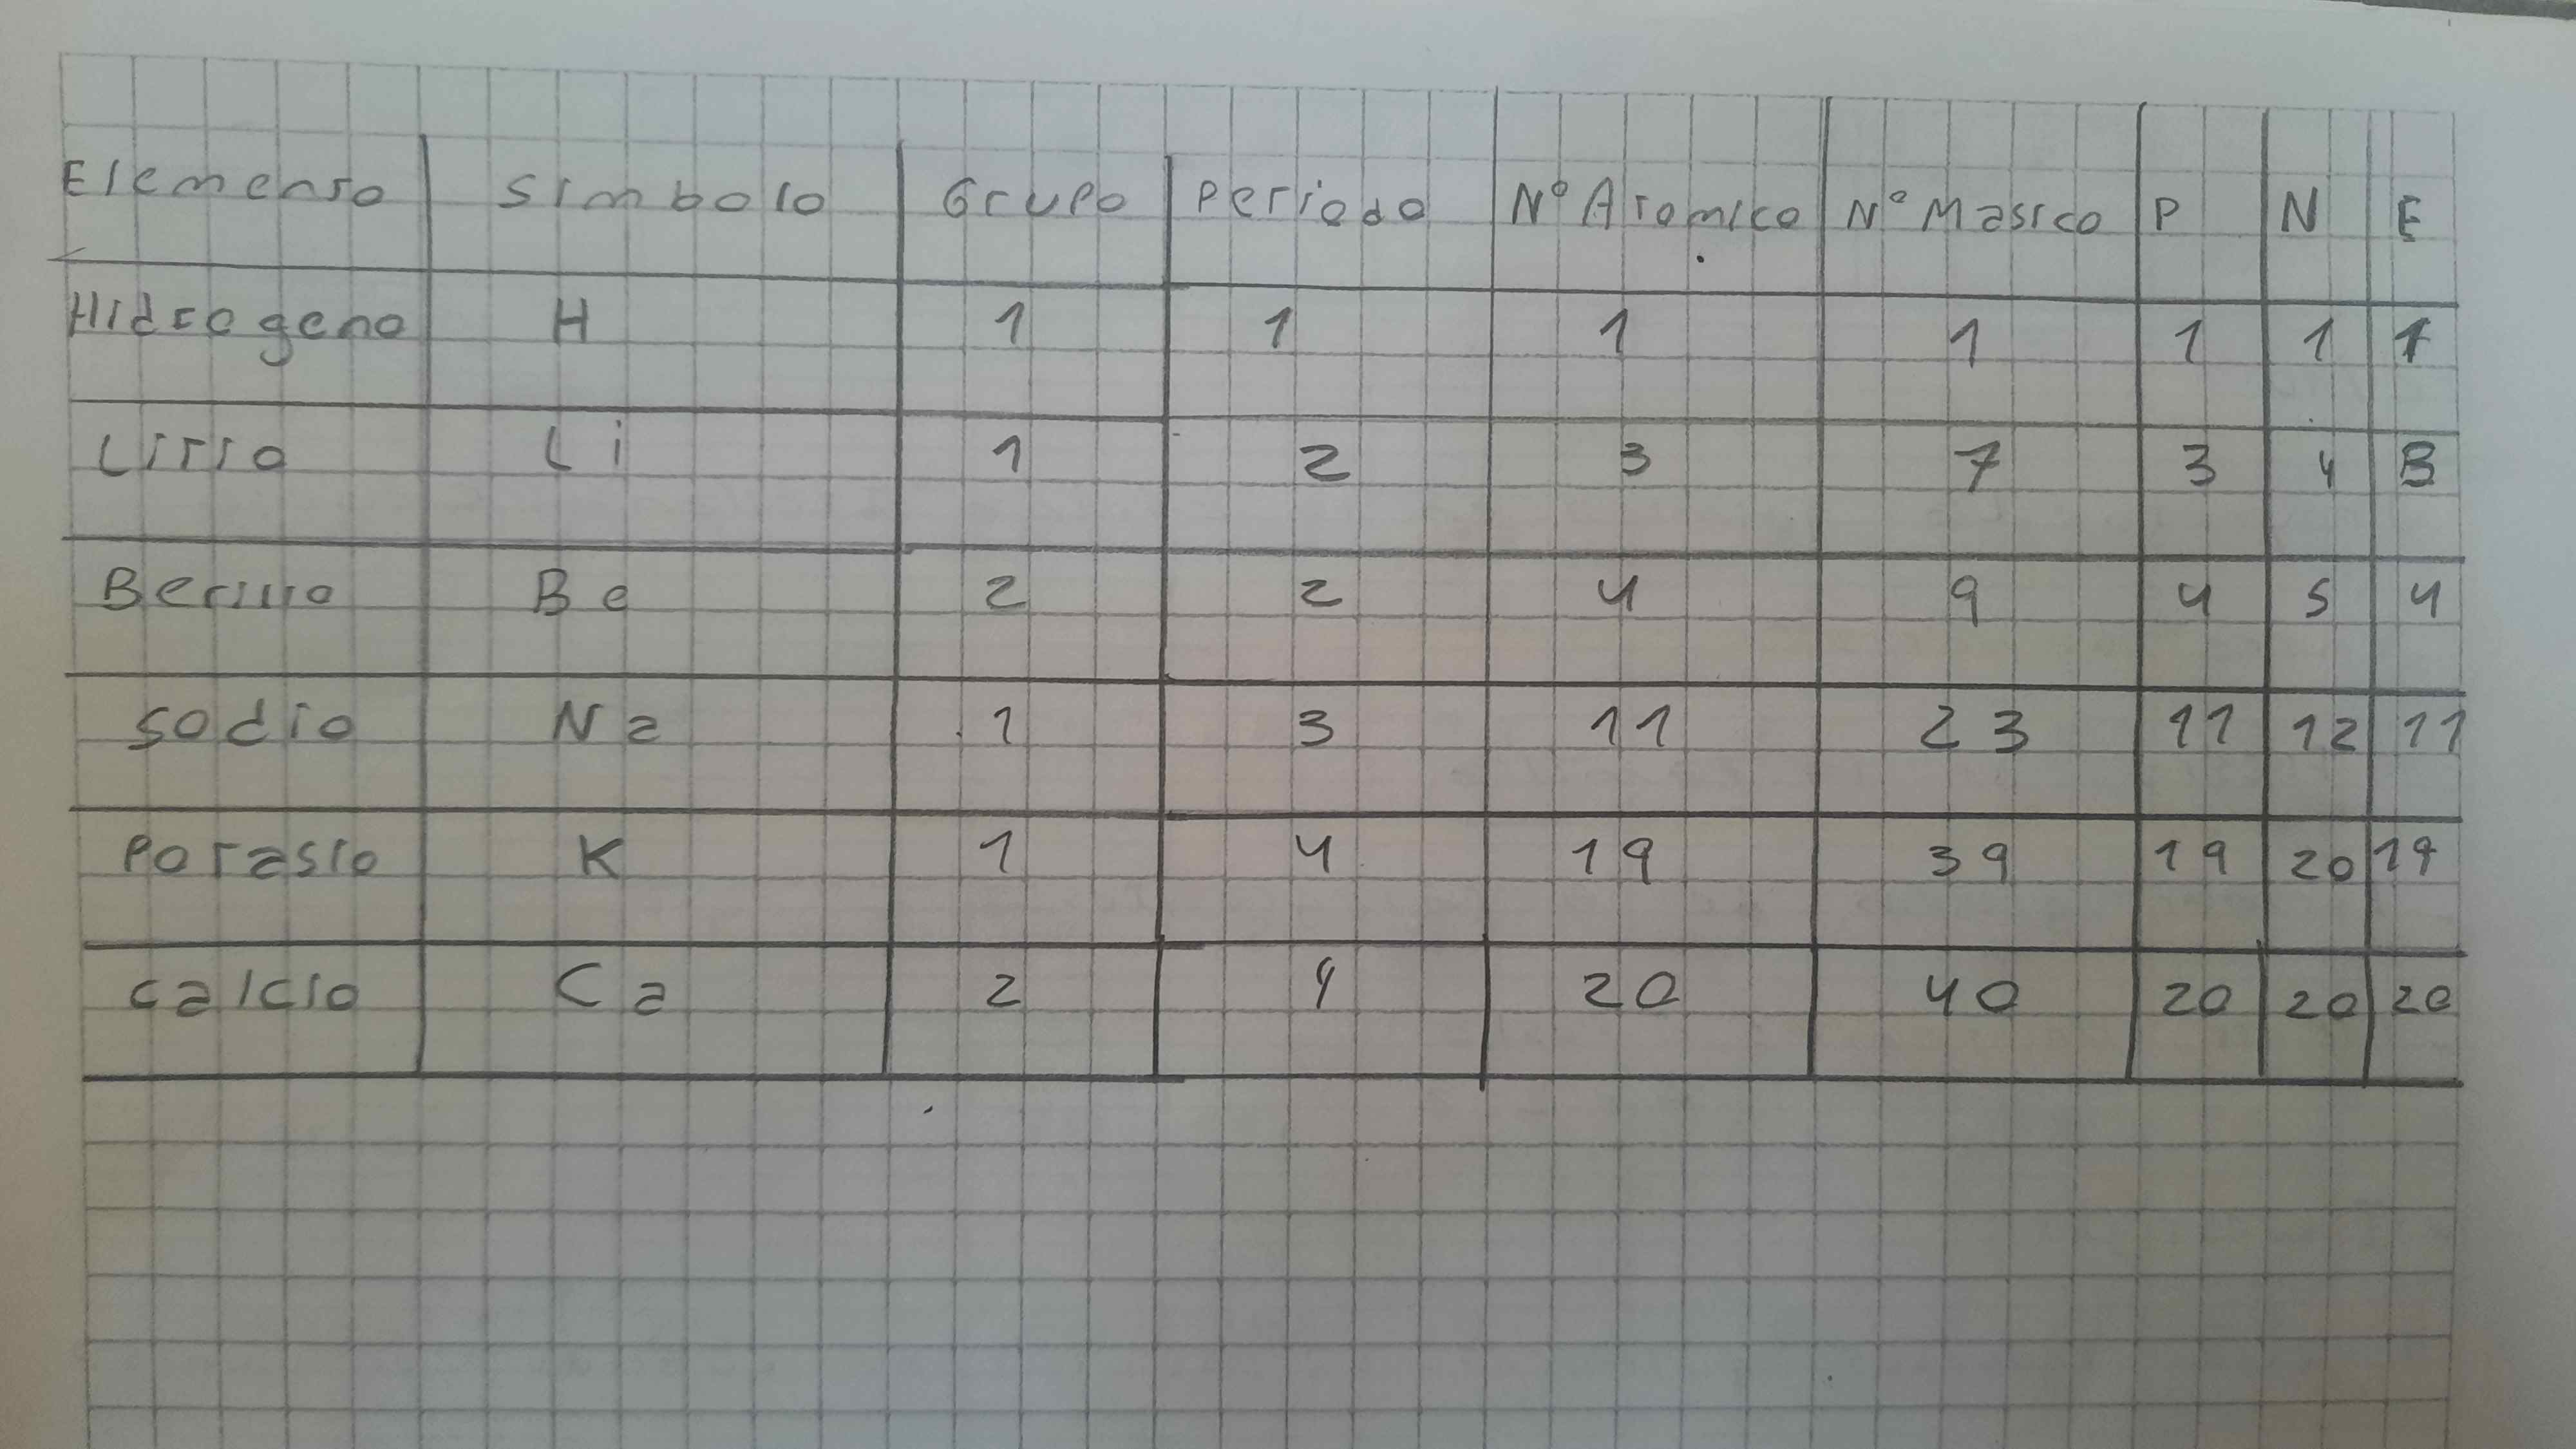 Elemento Simbolo Grupo Periodo Nº Atomico Nº Masico P N E
Hidrogeno H 1 1 1 1 1 1 1
Litio Li 1 2 3 7 3 4 3
Berilio Be 2 2 4 9 4 5 4
Sodio Na 1 3 11 23 11 12 11
Potasio K 1 4 19 39 19 20 19
Calcio Ca 2 4 20 40 20 20 20